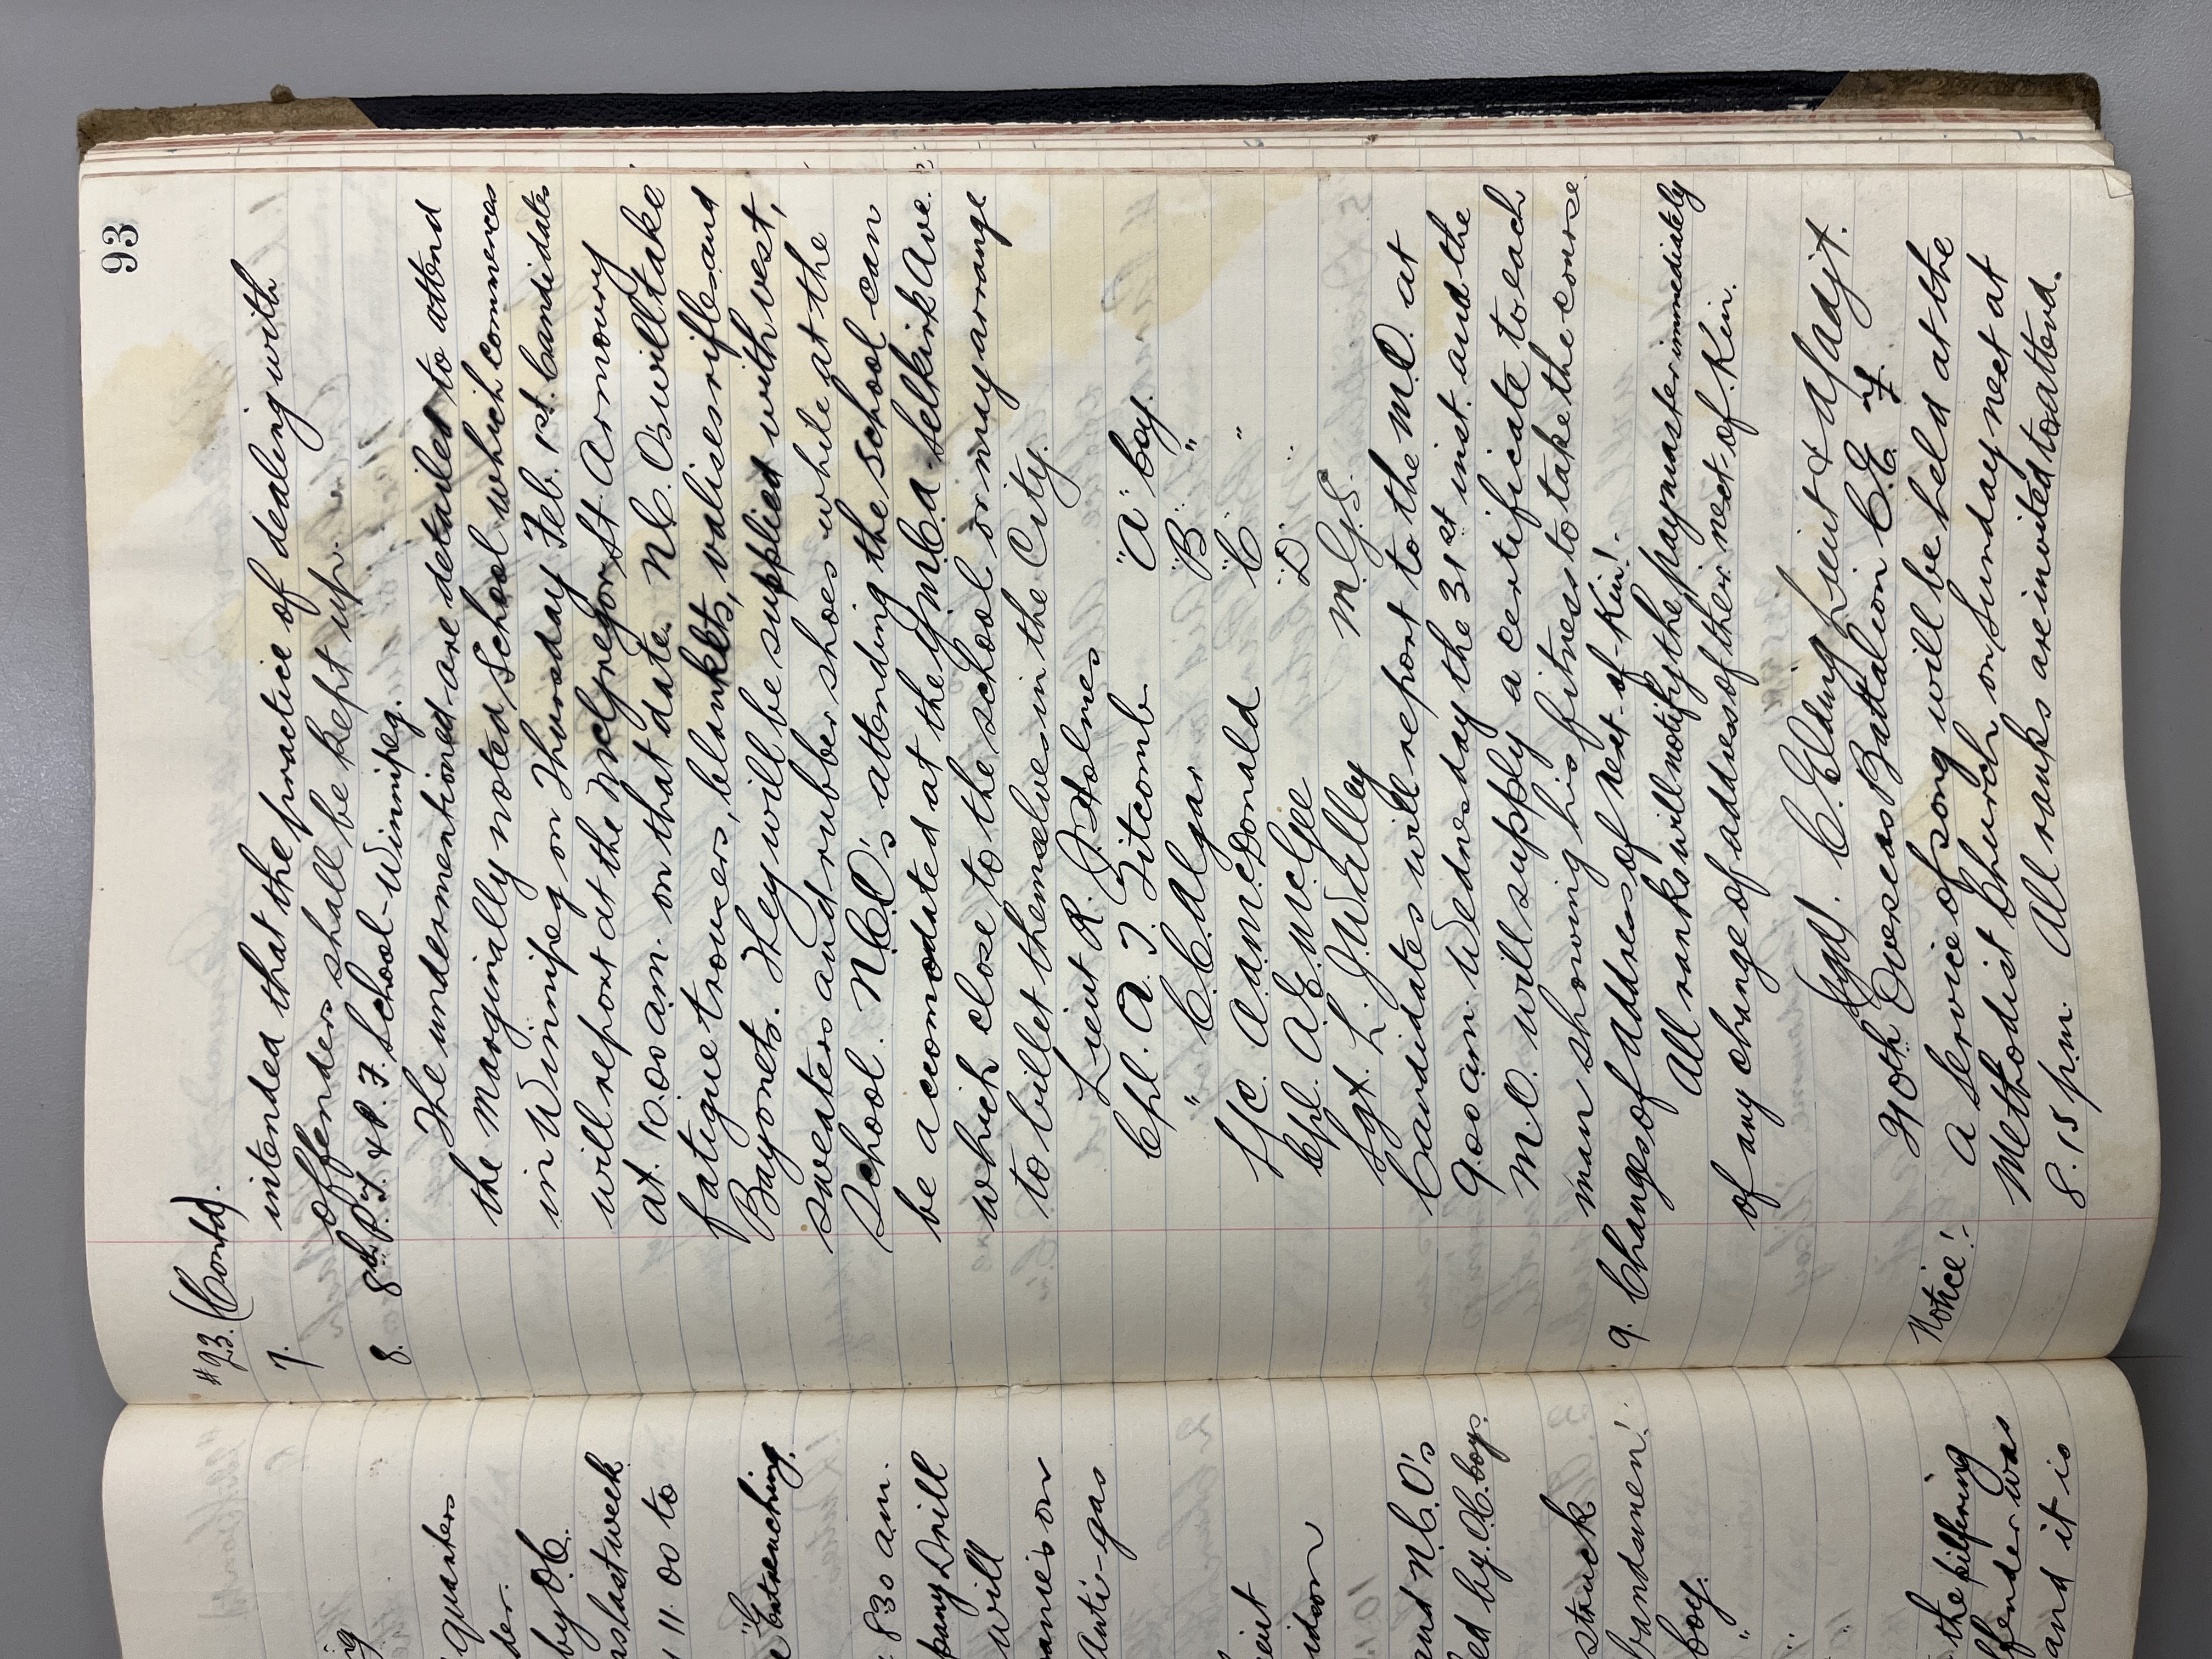 93
#23. (Contd).
7. intended that the practice of dealing with
offenders shall be kept up.
8. 8th P.T. & B.F. School - Winnipeg.
The undermentioned are detailed to attend
the marginally noted School which commences
in Winnipeg on Thursday Feb. 1st. Candidates
will report at the McGregor St. Armoury
at 10.00 am. on that date. N.C.O's will take
fatigue trousers, blankets, valises rifle and
Bayonets. They will be supplied with vest,
sweaters and rubber shoes while at the
School. N.C.O's attending the school can
be accomodated at the Y.M.C.A. Selkirk Ave.
which close to the school or may arrange
to billet themselves in the City.
Lieut R. J. Holmes
Cpl. A. T. Titcomb "A" Coy.
" C.C. Algar "B" "
L/C. A.A. McDonald "C" "
Cpl. A.E. McGee "D" "
Sgt. L. J. Walley M.G.S.
Candidates will report to the M.O. at
9.00 am. Wednesday the 31st inst. and the
M.O. will supply a certificate to each
man showing his fitness to take the course.
9. Changes of Address of next-of-Kin!-
All ranks will notify the paymaster immediately
of any change of address of their next-of-Kin.
(Sgd). C. Elding Lieut & A/Adjt.
Overseas Battalion C.E.F.
Notice!- A Service of song will be held at the
Methodist Church on Sunday next at
8.15 p.m. All ranks are invited to attend.
quarters
by O.C.
last week
11.00 to
"Entrenching.
8.30 am.
Drill
will
on
Anti-gas
and N.C.O's
by O.C. Coy.
struck
bandsmen!
Coy.
"
the pilfering
was
and it is